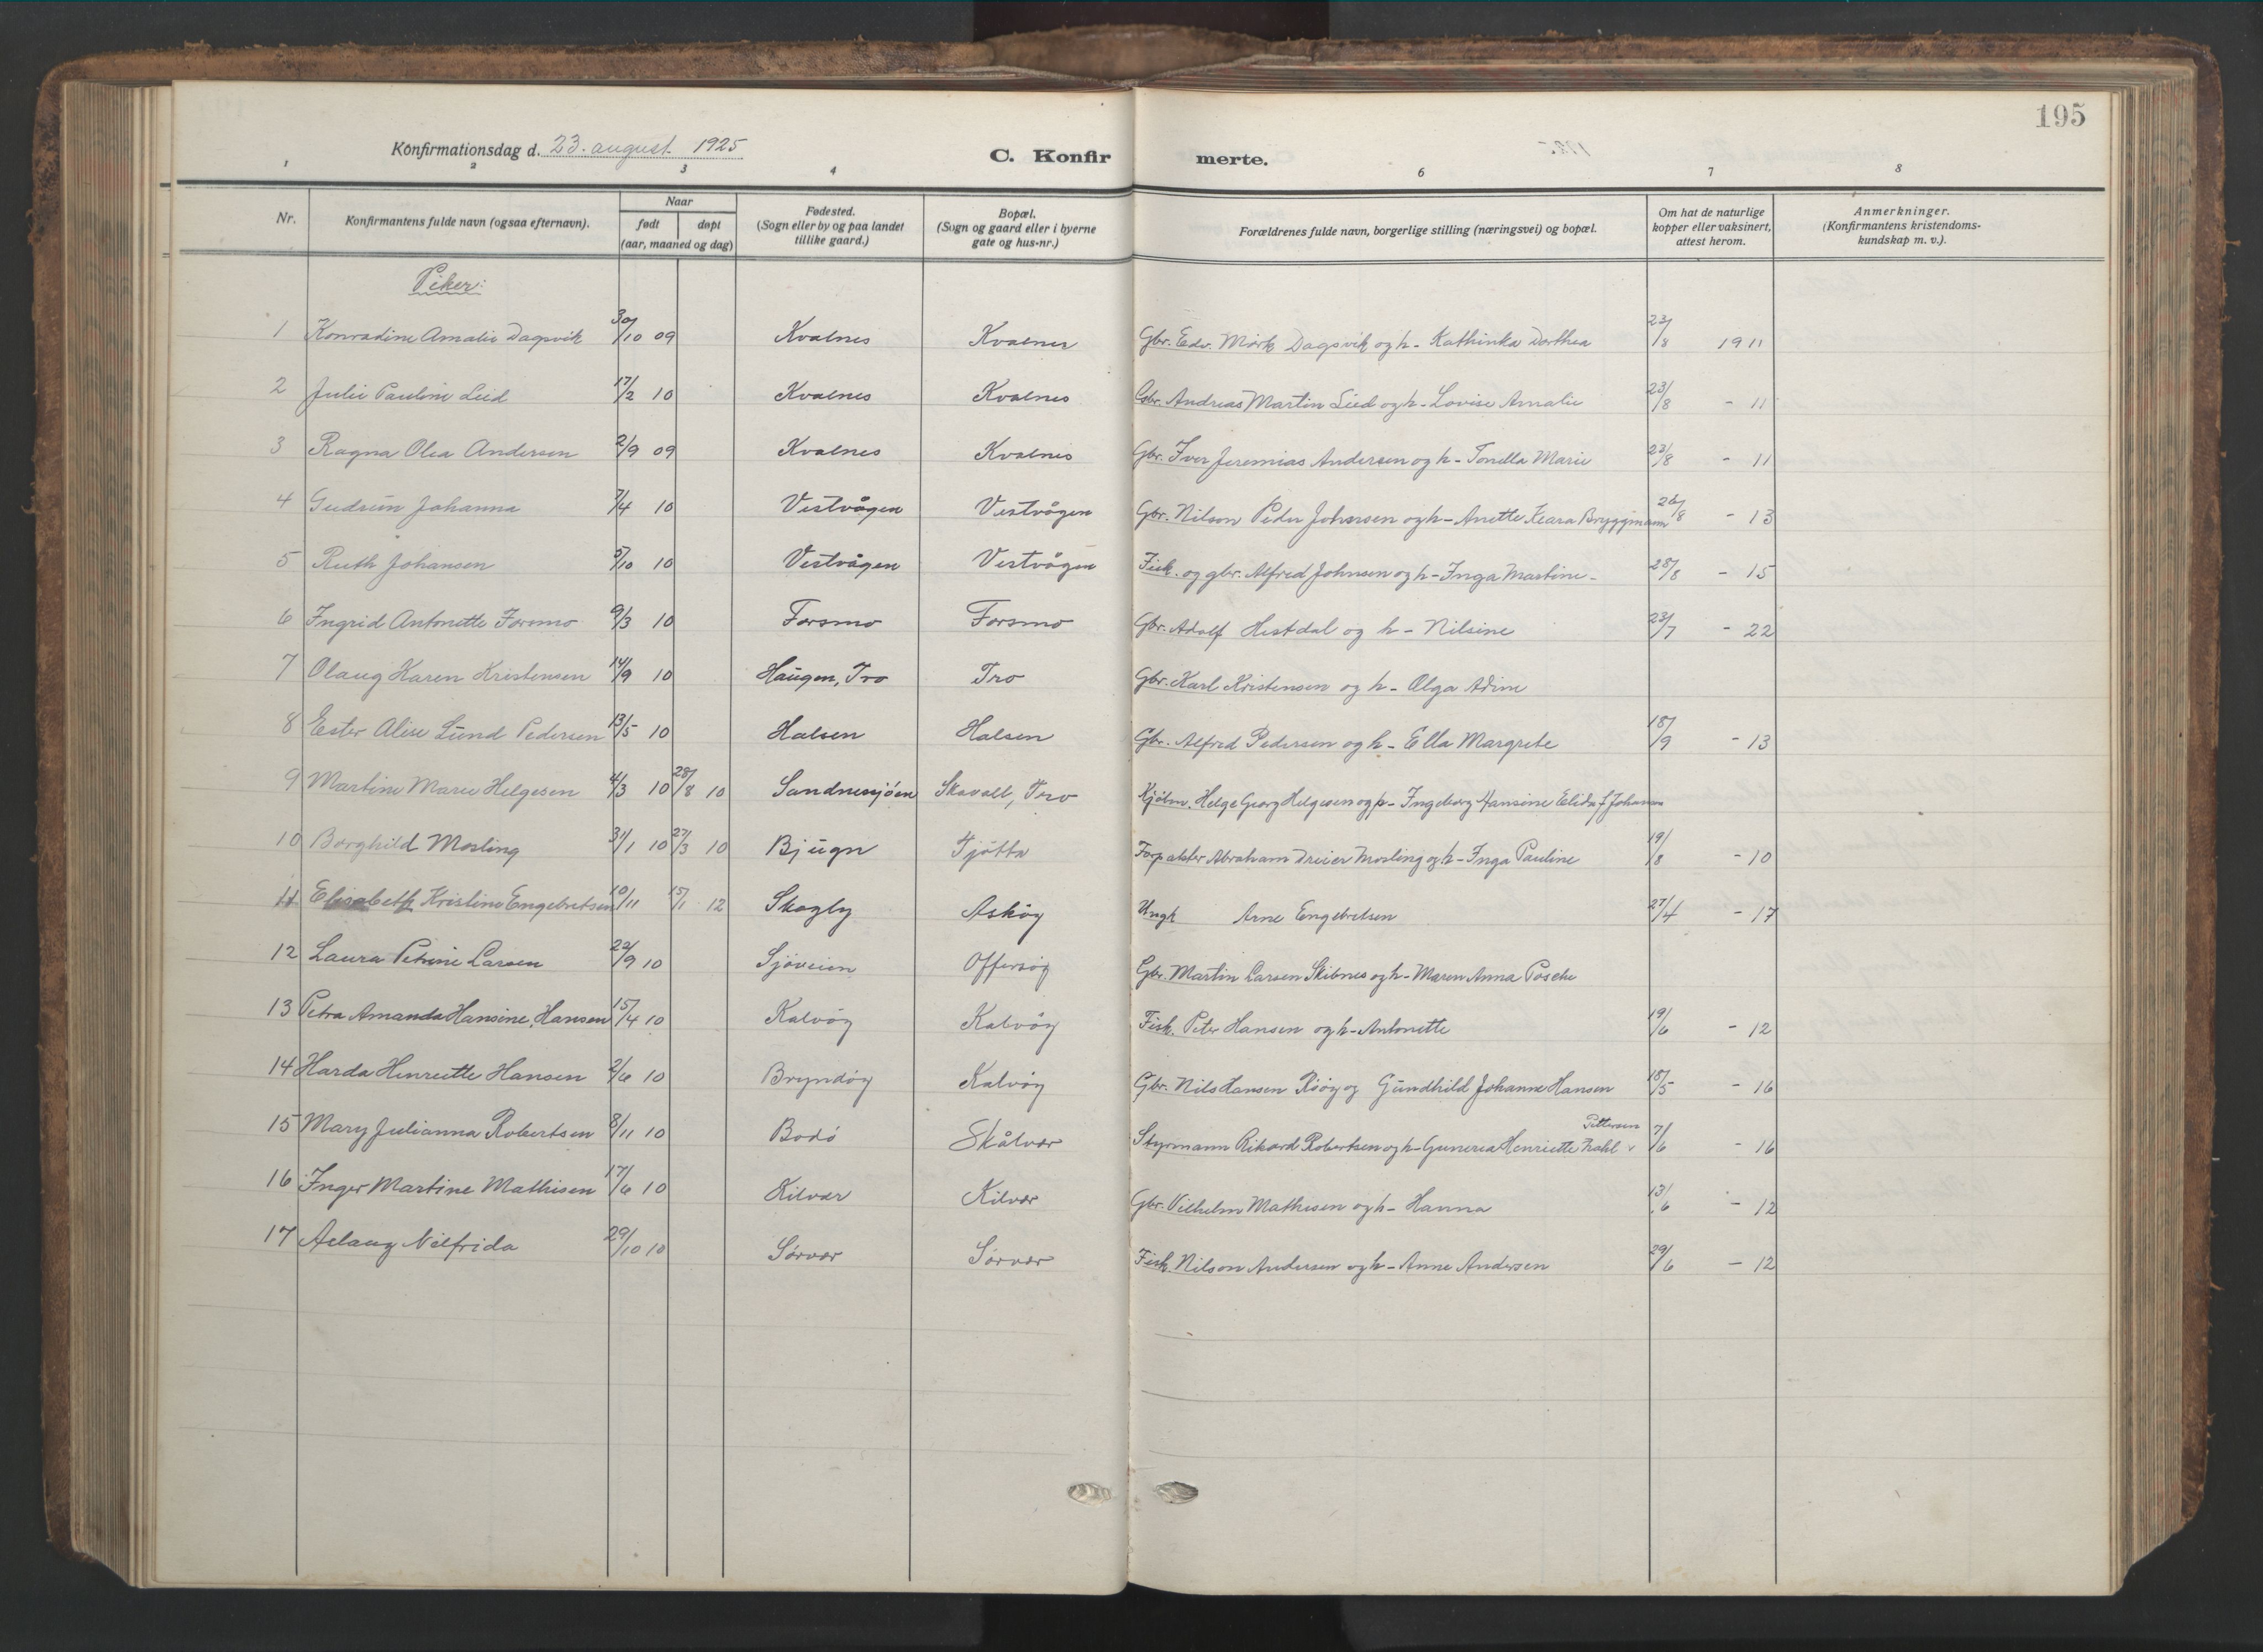 195
Konfirmationsdag d. 23. august 1925
C. Konfir merte.
1 2 3 4 6 7 8
Nr. Konfirmantens fulde navn (ogsaa efternavn). Naar født døpt (aar, maaned og dag) Fødested. (Sogn eller by og paa landet tillike gaard.) Bopæl. (Sogn og gaard eller i byerne gate og hus-nr.) Forældrenes fulde navn, borgerlige stilling (næringsvei) og bopæl. Om hat de naturlige kopper eller vaksinert, attest herom. Anmerkninger. (Konfirmantens kristendoms-kundskap m. v.).
Piker:
1 Konradine Amalie Dagsvik 30/10 09 Kvalnes Kvalnes Gbr. Edv. Mørk Dagsvik og h- Kathinka Dorthea 23/8 1911
2 Julie Pauline Lied 17/2 10 Kvalnes Kvalnes Gbr. Andreas Martin Lied og h- Lovise Amalie 23/8 - 11
3 Ragna Olea Andersen 2/9 09 Kvalnes Kvalnes Gbr. Iver Jeremias Andersen og h- Tonella Marie 23/8 - 11
4 Gudrun Johanna 7/4 10 Vestvågen Vestvågen Gbr. Nilson Peder Johnsen og h- Anette Keara Bryggmann 26/8 - 13
5 Ruth Johansen 5/10 10 Vestvågen Vestvågen Fisk. og gbr. Alfred Johnsen og h- Inga Martine - 28/8 - 15
6 Ingrid Antonette Forsmo 9/3 10 Forsmo Forsmo Gbr. Adolf Hestdal og h- Nilsine 23/7 - 22
7 Olaug Karen Kristensen 14/9 10 Haugen, Tro Tro Gbr. Karl Kristensen og h- Olga Adine
8 Ester Alise Lund Pedersen 13/5 10 Halsen Halsen Gbr. Alfred Pedersen og h- Ella Margrete 18/9 - 13
9 Martine Marie Helgesen 4/3 10 28/8 10 Sandnessjøen Skavoll, Tro Kjøbm. Helge Georg Helgesen og h- Ingeborg Hansine Elida f Johansen
10 Borghild Mosling 31/1 10 27/3 10 Bjugn Tjøtta Abraham Dreier Mosling og h- Inga Pauline 19/8 - 10
11 Elisabeth Kristine Engebretsen 10/11 15/1 12 Skogly Askøy Ungk Arne Engebretsen 27/4 - 17
12 Laura Petrine Larsen 22/9 10 Sjøveien Offersøy Gbr. Martin Larsen Skibnes og h- Maren Anna Posche
13 Petra Amanda Hansine Hansen 15/4 10 Kalvøy Kalvøy Fisk. Peter Hansen og h- Antonette 19/6 - 12
14 Harda Henriette Hansen 2/6 10 Bryndøy Kalvøy Gbr. Nils Hansen Røøy og Gundhild Johanne Hansen 18/5 - 16
15 Mary Julianna Robertsen 8/11 10 Bodø Skålvær Styrmann Rikard Robertsen og h- Guneria Henriette Krahl Pettersen 7/6 - 16
16 Inger Martine Mathisen 17/6 10 Kilvær Kilvær Gbr. Vilhelm Mathisen og h- Hanna 13/6 - 12
17 Aslaug Nilfrida 29/10 10 Sørvær Sørvær Fisk. Nilson Andersen og h- Anne Andersen 29/6 - 12